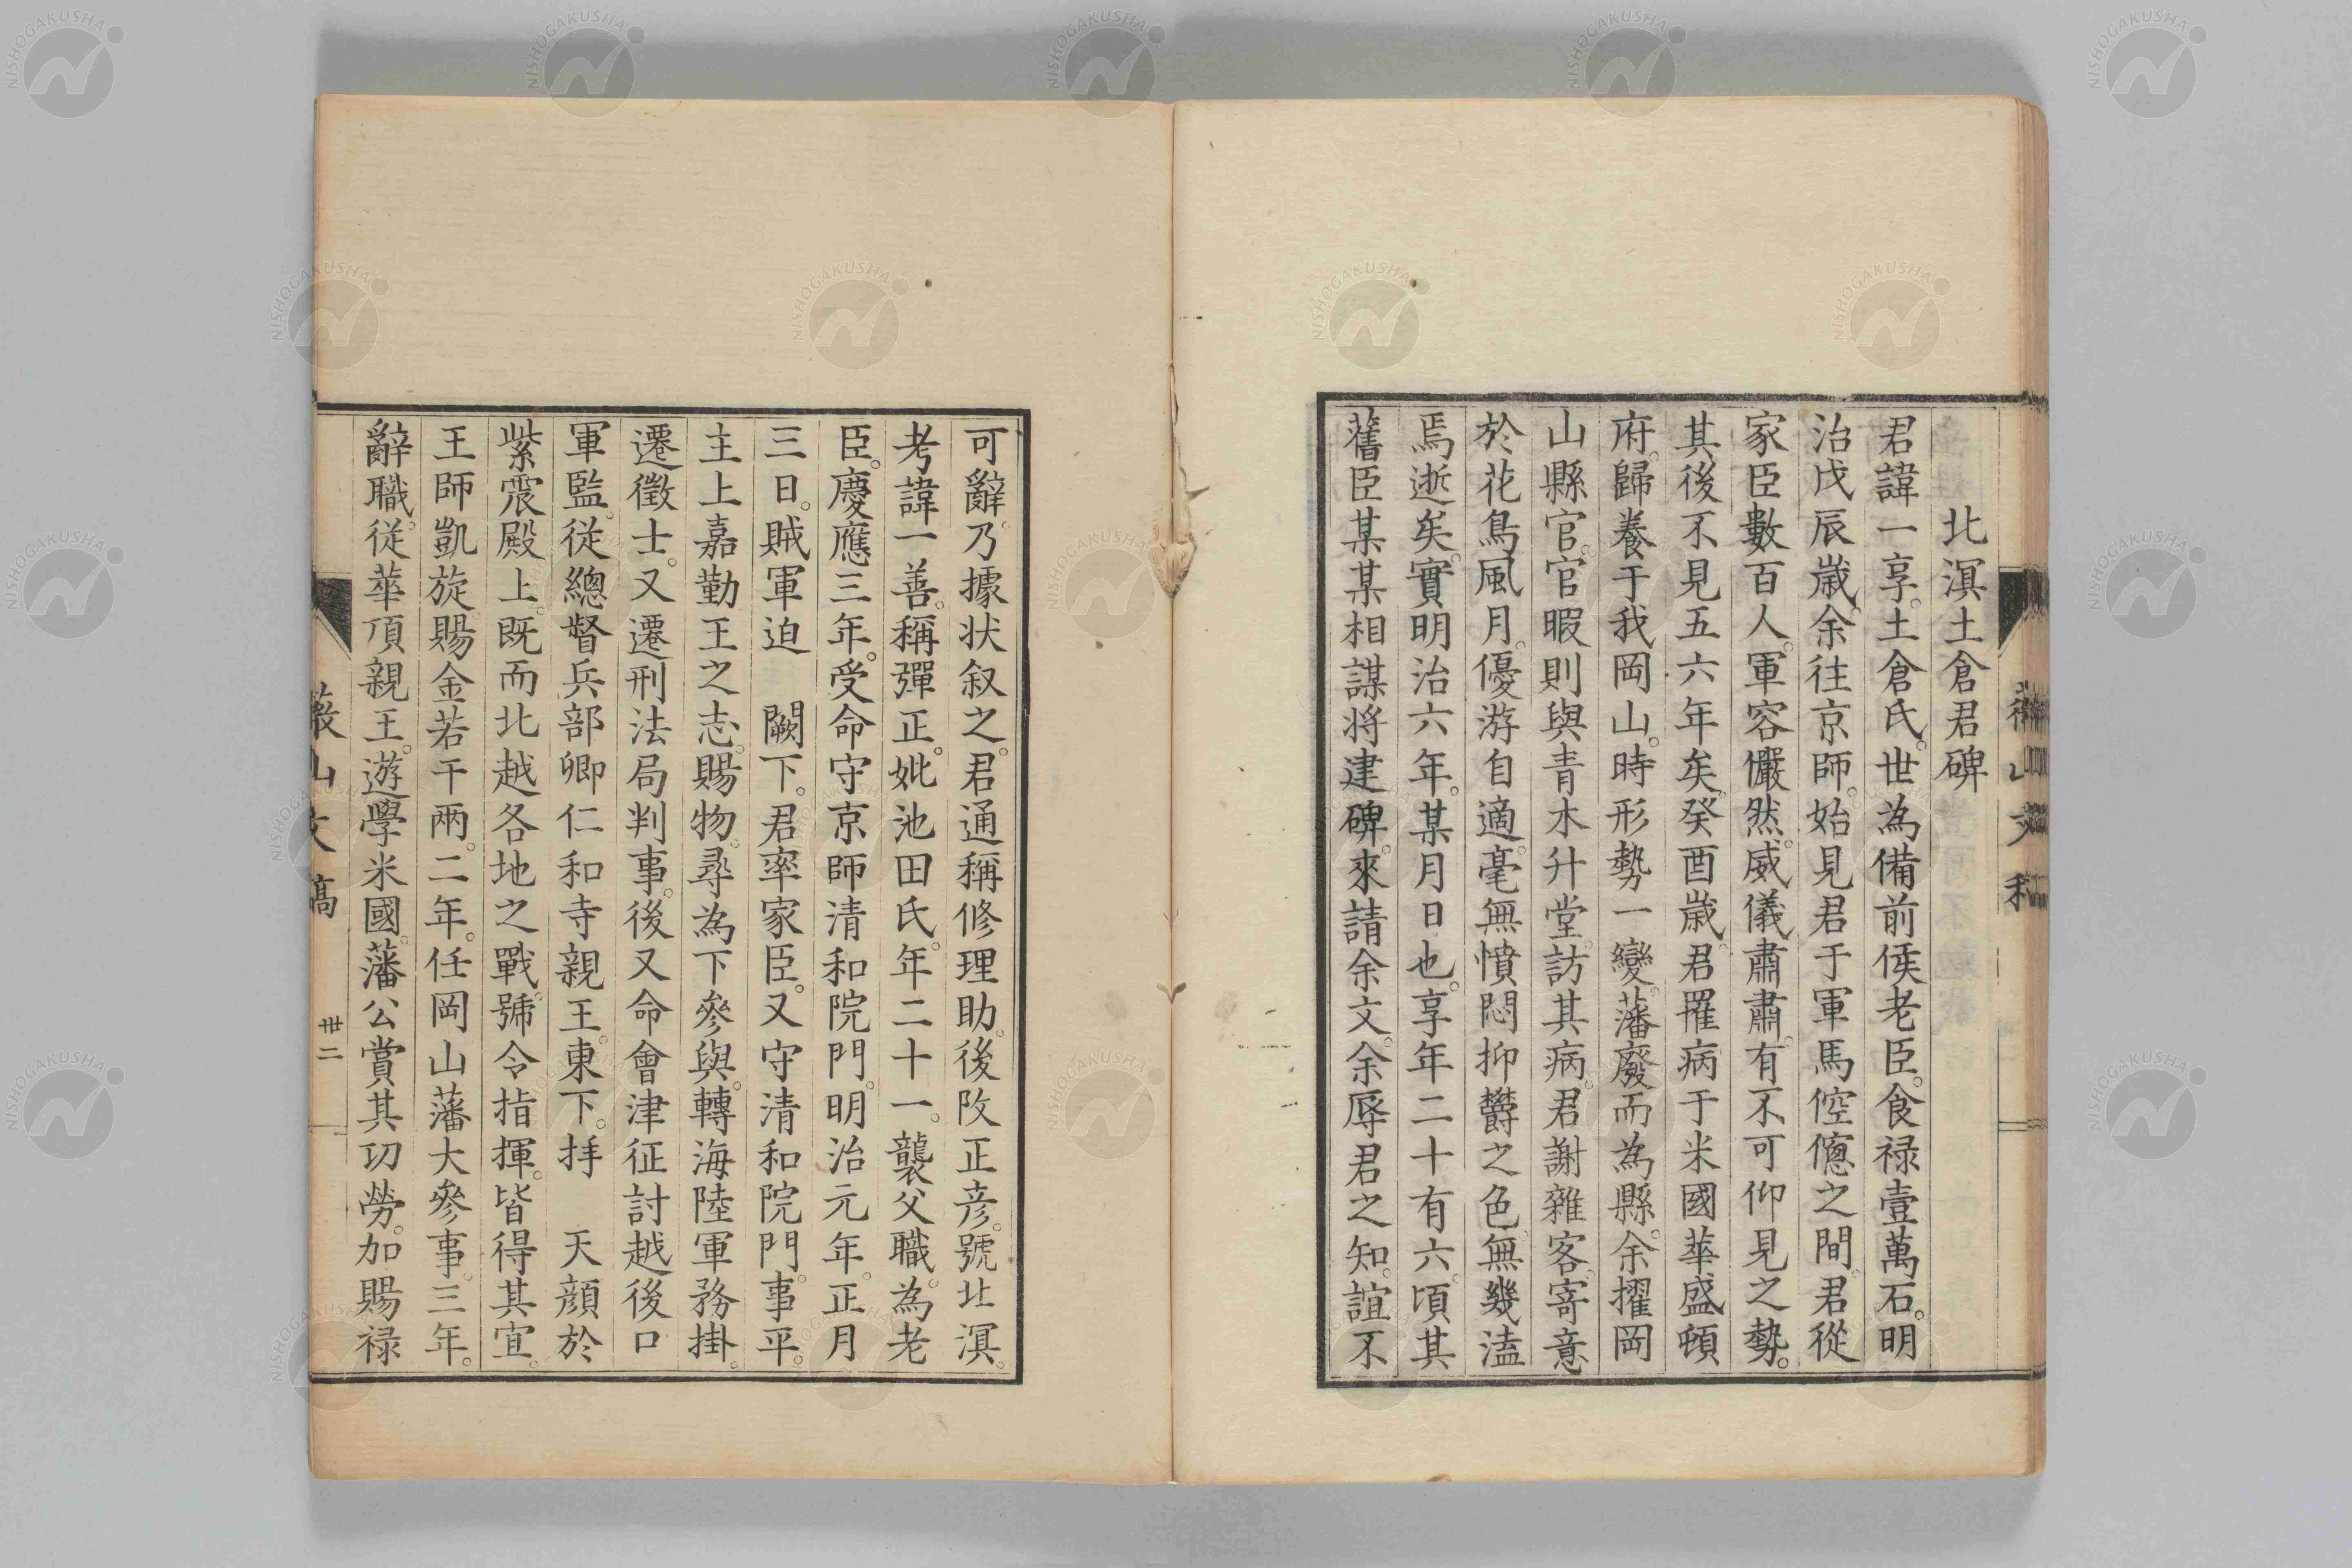 北溟土倉君碑
君諱一享。土倉氏。世為備前侯老臣。食禄壹萬石。明
治戊辰嵗。余往京師。始見君于軍馬倥傯之間。君從
家臣數百人。軍容儼然。威儀肅肅。有不可仰見之勢。
其後不見五六年矣。癸酉嵗。君罹病于米國華盛頓
府。歸養于我岡山。時形勢一變。藩廢而為縣。余擢岡
山縣官。官暇則與青木升堂。訪其病。君謝雜客。寄意
於花鳥風月。優游自適。毫無憤悶抑鬱之色。無幾溘
焉逝矣。實明治六年。某月日也。享年二十有六。頃其
舊臣某某相謀。将建碑。來請余文。余辱君之知。誼不
可辭。乃據状叙之。君通稱修理助。後改正彦。號北溟。
考諱一善。稱彈正。妣池田氏。年二十一。襲父職。為老
臣。慶應三年。受命守京師清和院門。明治元年。正月
三日。賊軍迫　闕下。君率家臣。又守清和院門。事平。
主上嘉勤王之志。賜物。尋為下參與。轉海陸軍務掛。
遷徵士。又遷刑法局判事。後又命會津征討越後口
軍監。従總督兵部卿仁和寺親王。東下。拝　天顔於
紫宸殿上。既而北越各地之戰。號令指揮。皆得其宜。
王師凱旋。賜金若干兩。二年。任岡山藩大參事。三年。
辭職。従華頂親王。遊學米國。藩公賞其功勞。加賜禄
山文稿
丗二
NISHOGAKUSHA